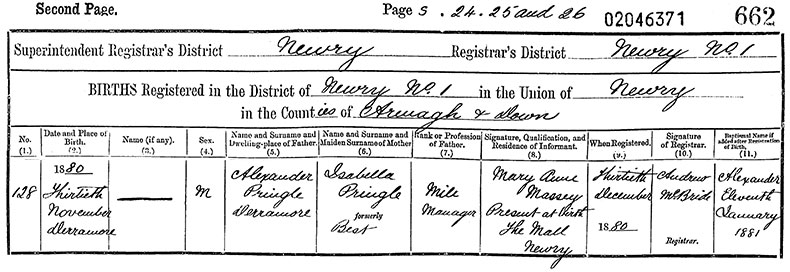 Second Page.
Page s. 24. 25 and 26
02046371
662
Superintendent Registrar's District Newry Registrar's District Newry No. 1
BIRTHS Registered in the District of Newry No. 1 in the Union of Newry
in the Counties of Armagh & Down
No. (1.)
Date and Place of Birth. (2.)
Name (if any). (3.)
Sex. (4.)
Name and Surname and Dwelling-place of Father. (5.)
Name and Surname and Maiden Surname of Mother (6.)
Rank or Profession of Father. (7.)
Signature, Qualification, and Residence of Informant. (8.)
When Registered. (9.)
Signature of Registrar. (10.)
Baptismal Name if added after Registration of Birth. (11.)
128
1880
Thirtieth
November
Derramore
M
Alexander
Pringle
Derramore
Isabella
Pringle
formerly
Best
Mill
Manager
Mary Anne
Massey
Present at Birth
The Mall
Newry
Thirtieth
December
1880
Andrew
McBride
Registrar.
Alexander
Eleventh
January
1881